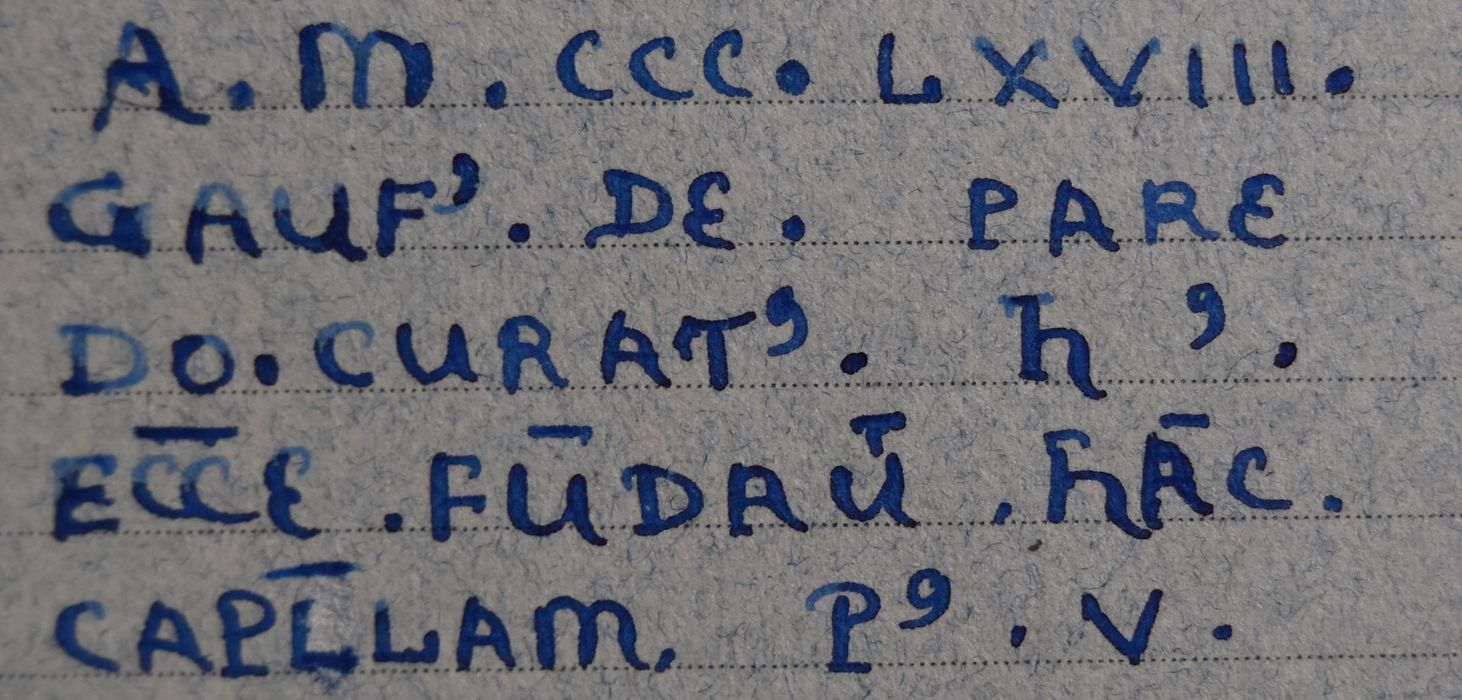 A. M. CCC. LXVIII.
GAUF’. DE. PARE
DO. CURAT⁹. h⁹.
EC̅C̅E. FŪDAV̄. hĀC.
CAPL̅LAM. P⁹. V.